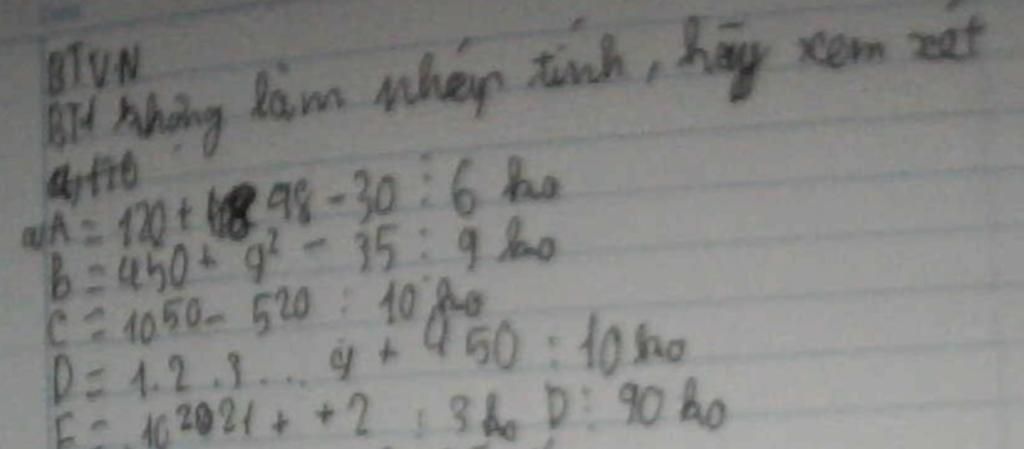 BTVN
BT1 không làm nhép tính, hãy xem xét
a)A = 120 + 98 - 30 : 6 ko
B = 450 + 9² - 35 : 9 ko
C = 10⁵⁰ - 5²⁰ : 10 ko
D = 1.2.3... 9 + 450 : 10 ko
E = 10²⁰²¹ + + 2 : 3 ko D : 90 ko